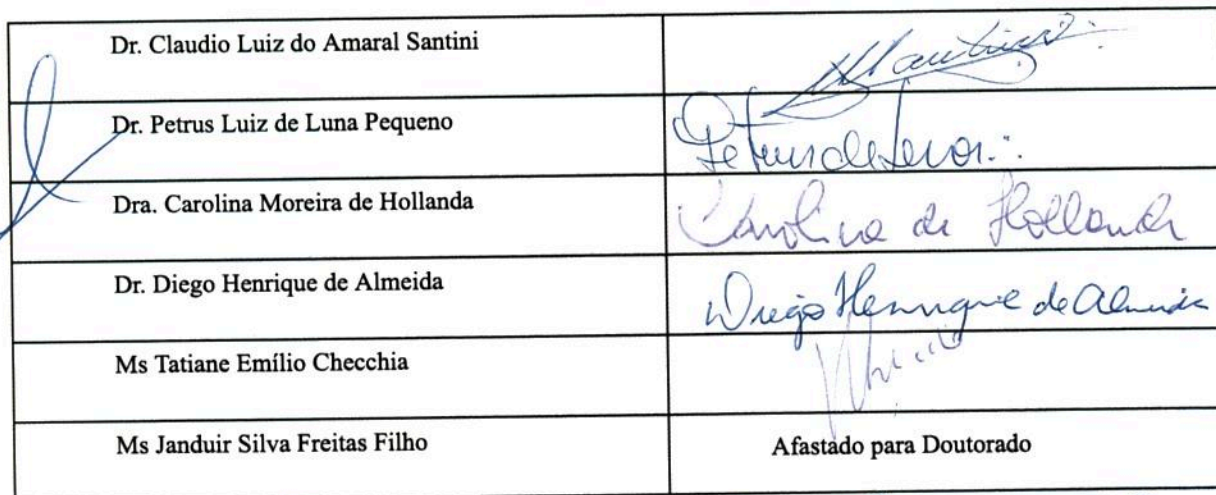 Dr. Claudio Luiz do Amaral Santini
Dr. Petrus Luiz de Luna Pequeno
Dra. Carolina Moreira de Hollanda Carolina de Hollanda
Dr. Diego Henrique de Almeida Diego Henrique de Almeida
Ms Tatiane Emílio Checchia
Ms Janduir Silva Freitas Filho Afastado para Doutorado